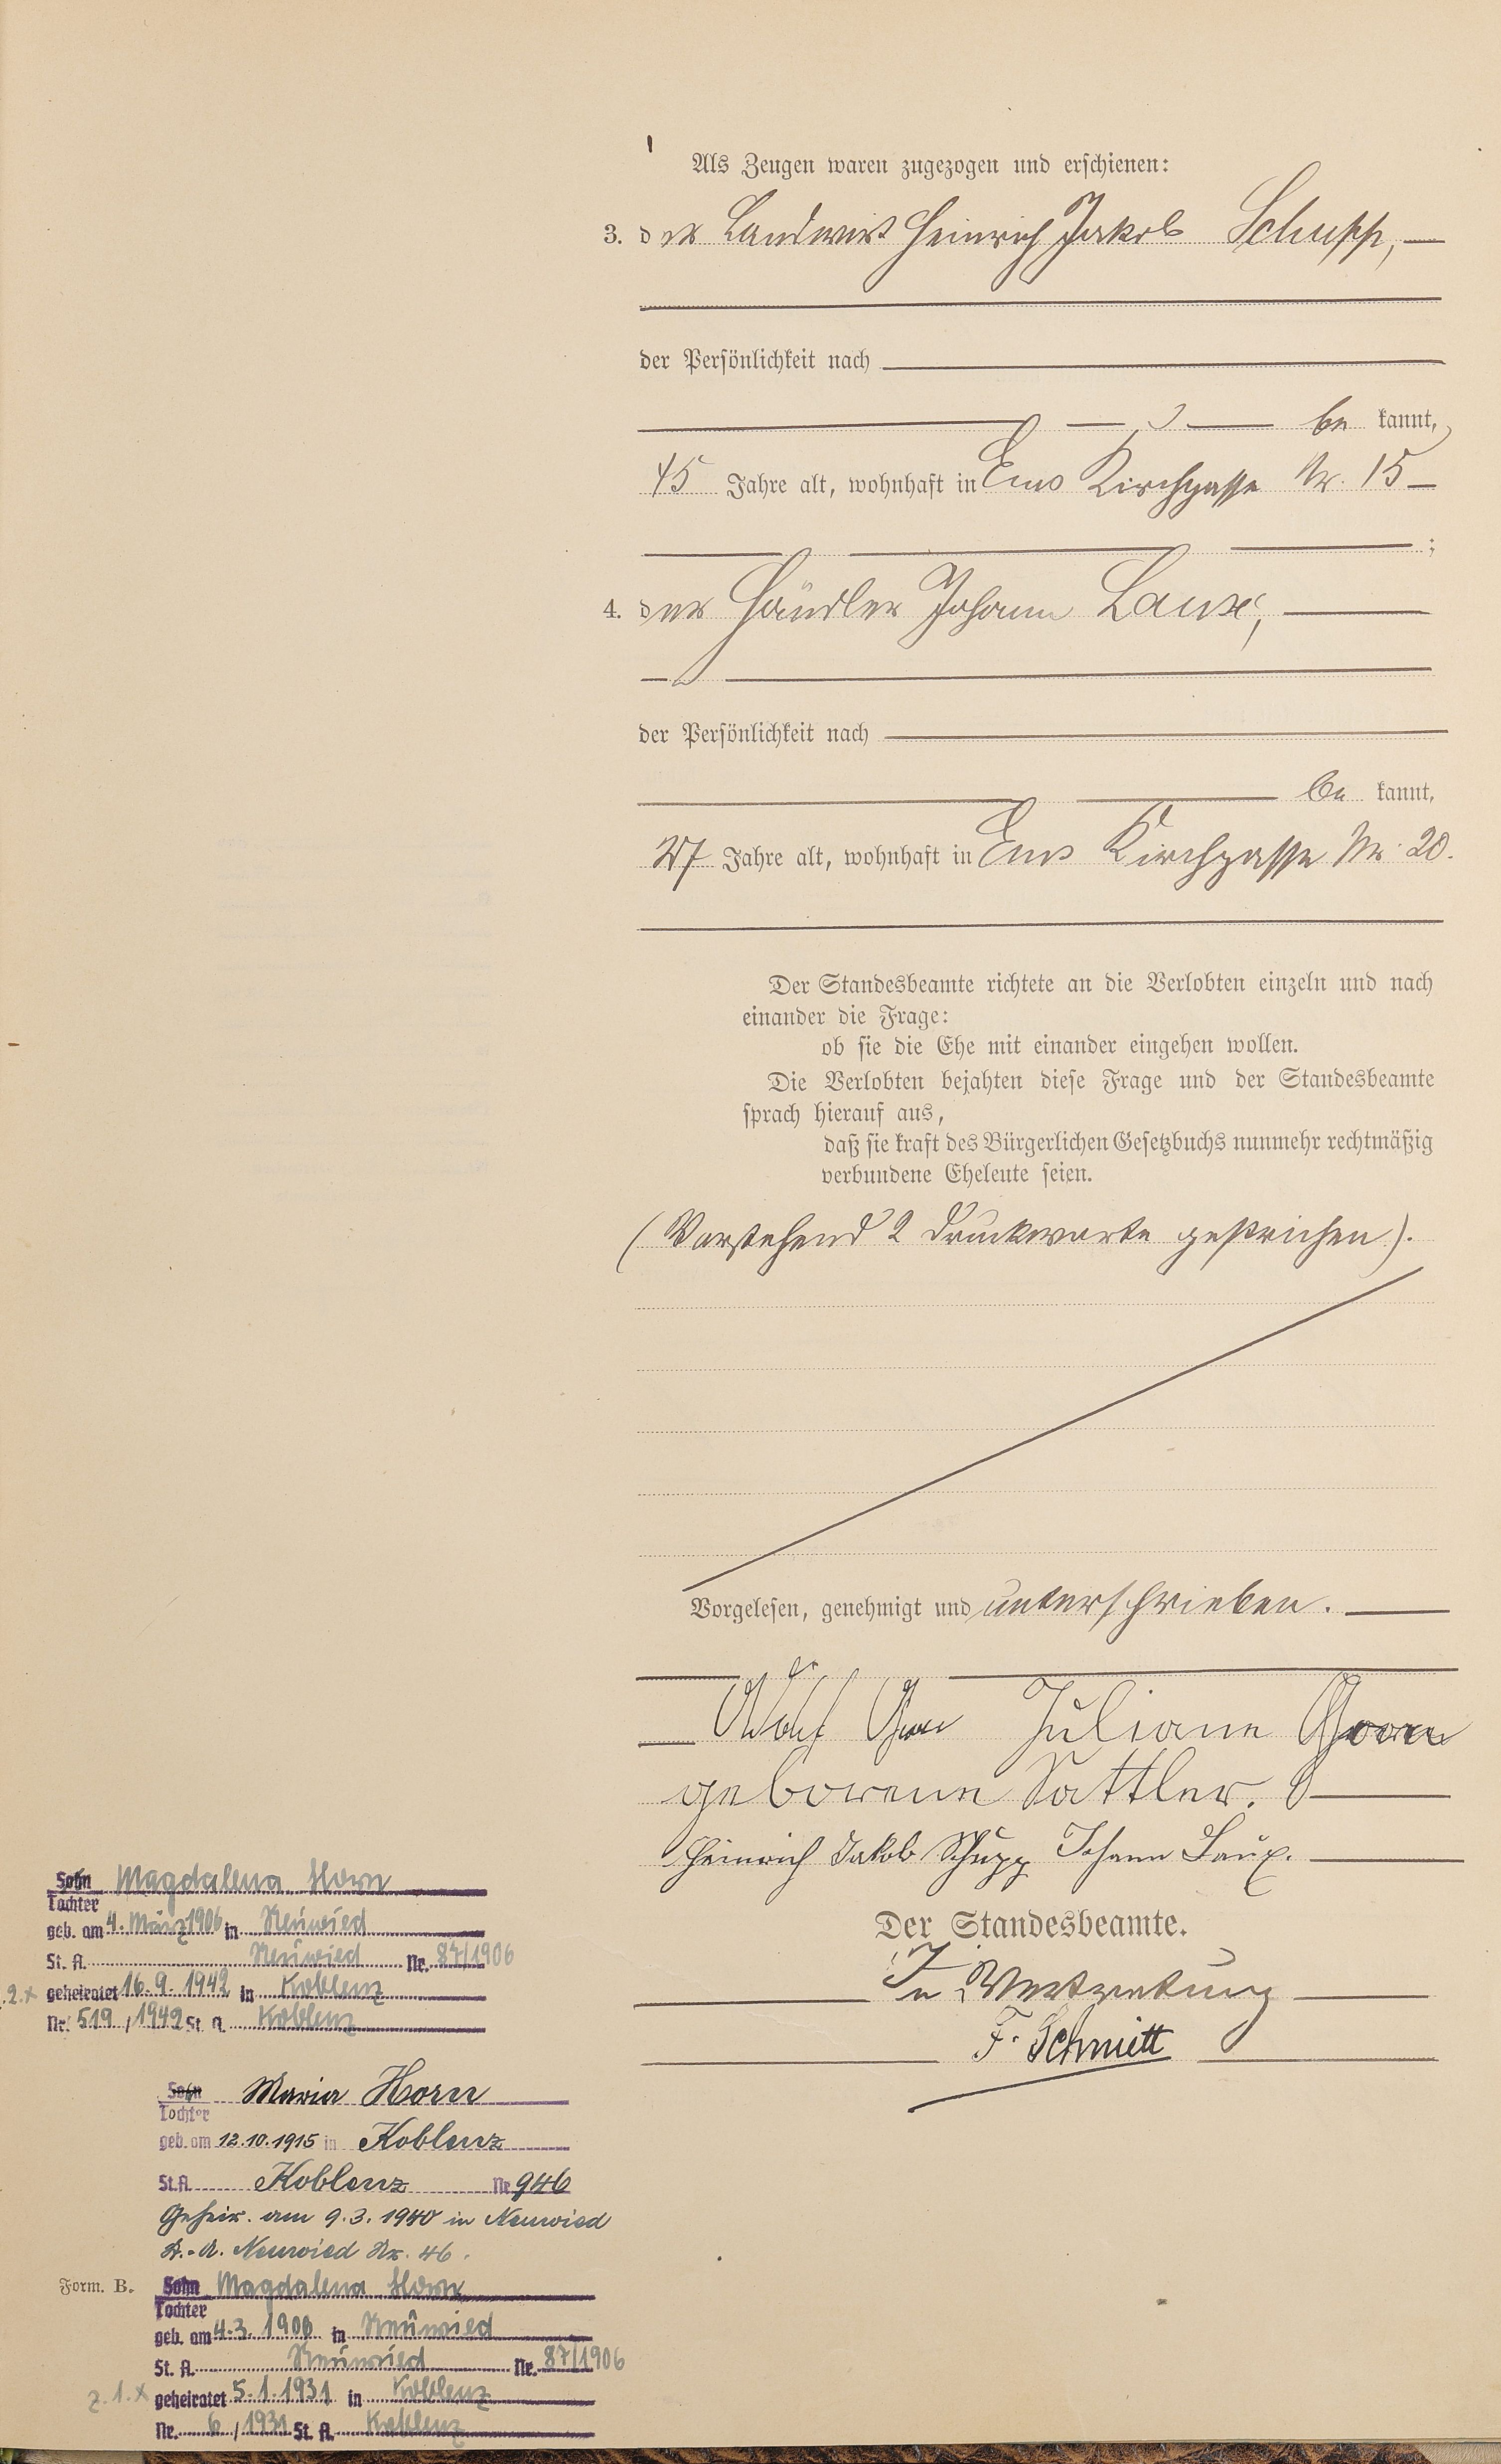 Als Zeugen waren zugezogen und erschienen:
3. der Landwirt Heinrich Jakob Schupp,
der Persönlichkeit nach
be kannt,
45 Jahre alt, wohnhaft in Ems Kirchgasse Nr. 15
;
4. der Händler Johann Laux,
der Persönlichkeit nach
be kannt,
27 Jahre alt, wohnhaft in Ems Kirchgasse Nr. 20.
Der Standesbeamte richtete an die Verlobten einzeln und nach
einander die Frage:
ob sie die Ehe mit einander eingehen wollen.
Die Verlobten bejahten diese Frage und der Standesbeamte
sprach hierauf aus,
daß sie kraft des Bürgerlichen Gesetzbuchs nunmehr rechtmäßig
verbundene Eheleute seien.
(Vorstehend 2 Druckworte gestrichen).
Vorgelesen, genehmigt und unterschrieben.
Adolf Horn Juliane Horn
geborene Sattler.
Heinrich Jakob Schupp Johann Laux.
Der Standesbeamte.
In Vertretung
F. Schmitt
Sohn Magdalena Horn
Tochter
geb. am 4. März 1906 in Neuwied
St. A. Neuwied Nr. 87/1906
2. x geheiratet 16.9.1942 in Koblenz
Nr. 519 / 1942 St. A. Koblenz
Sohn Maria Horn
Tochter
geb. am 12.10.1915 in Koblenz
St.A. Koblenz Nr. 946
Geheir. am 9.3.1940 in Neuwied
St.-A. Neuwied Nr. 46.
Form. B.
Sohn Magdalena Horn
Tochter
geb. am 4.3.1906 in Neuwied
St. A. Neuwied Nr. 87/1906
z. 1. x geheiratet 5.1.1931 in Koblenz
Nr. 6 / 1931 St. A. Koblenz